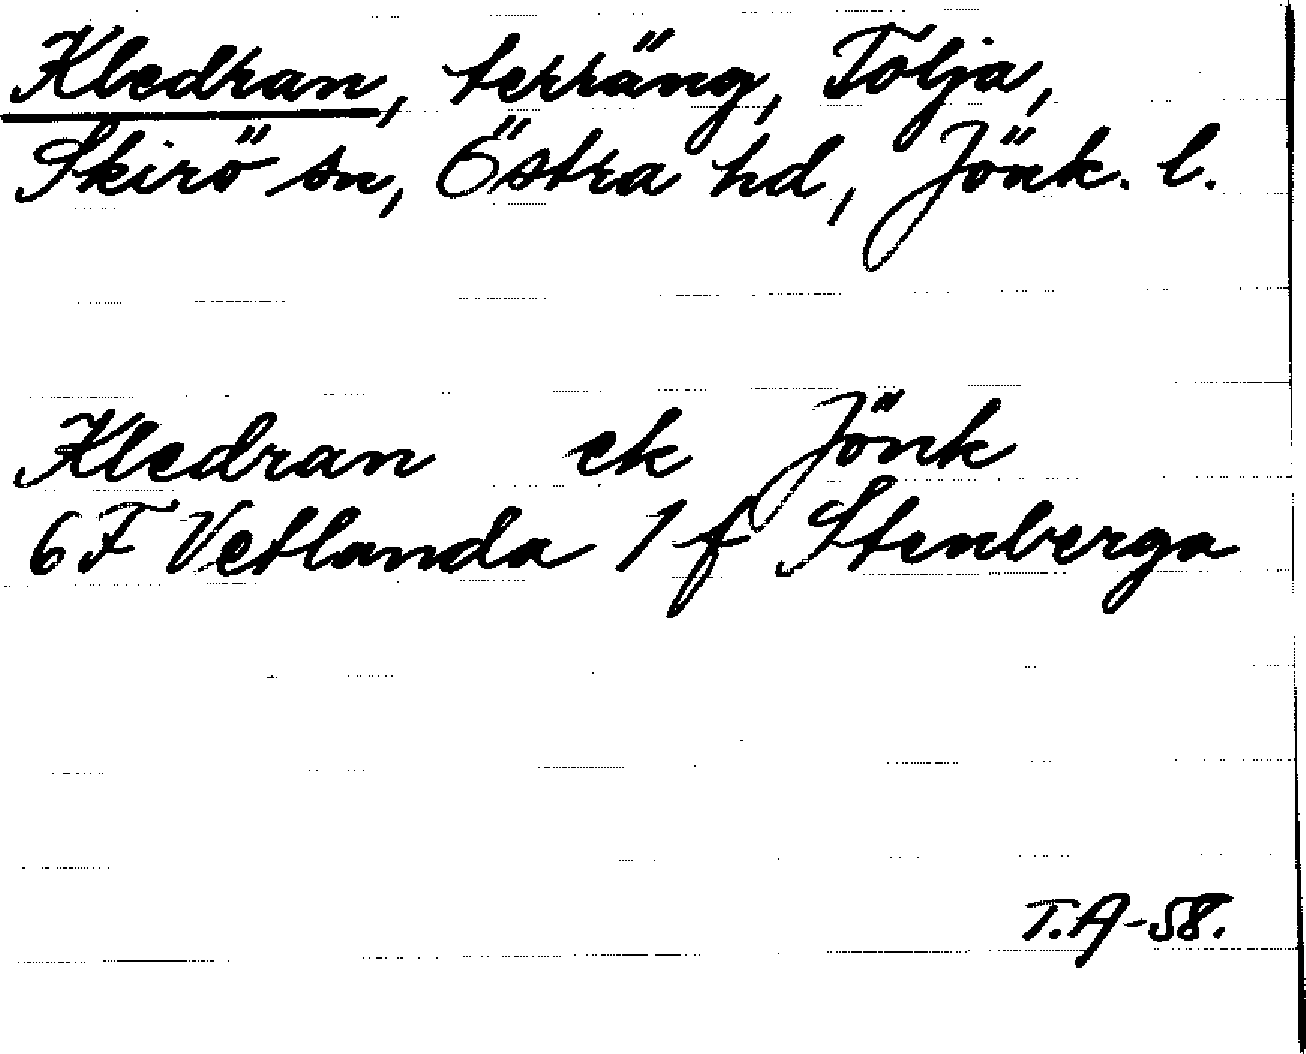 Kledran, terräng, Tölja,
Skirö sn, Östra hd, Jönk. l.
Kledran ek Jönk
6F Vetlanda 1 f Stenberga
T.A-58.